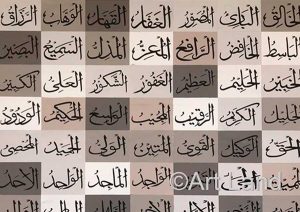 الخالق البارئ المصور الغفار القهار الوهاب الرزاق
الباسط الخافض الرافع المعز المذل السميع البصير
الخبير الحليم العظيم الغفور الشكور العلي الكبير
الجليل الكريم الرقيب المجيب الواسع الحكيم الودود
الحق الوكيل القوي المتين الولي الحميد المحصي
المميت الحي القيوم الواجد الماجد الواحد الاحد
©Art Land